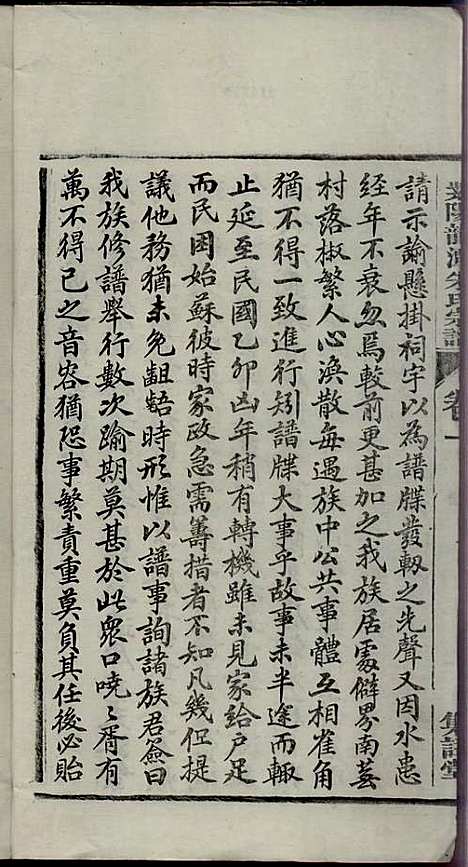 卷一
請示諭懸掛祠宇以為譜牒發軔之先聲又因水患
経年不衰忽焉較前更甚加之我族居處僻界南芸
村落椒繁人心渙散每遇族中公共事體互相雀角
猶不得一致進行矧譜牒大事乎故事未半途而輙
止延至民國乙卯凶年稍有轉機雖未見家給戶足
而民困始蘇彼時家政急需籌措者不知凡幾但提
議他務猶未免齟齬時形惟以譜事詢諸族君僉曰
我族修譜舉行數次踰期莫甚於此衆口嘵〻胥有
萬不得已之音容猶恐事繁責重莫負其任後必貽